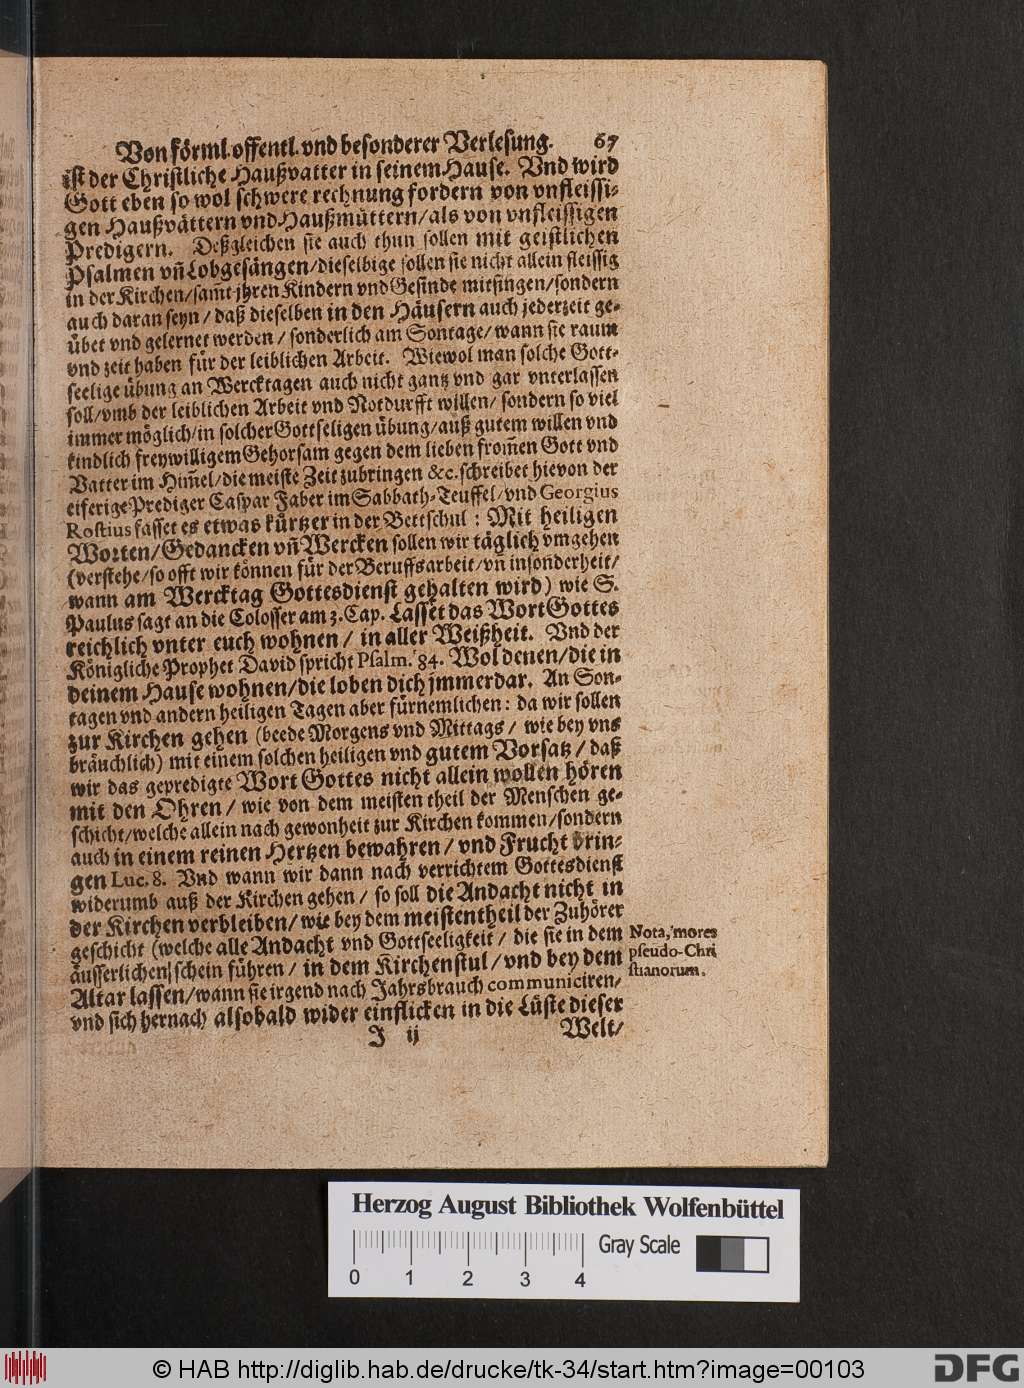 Von förml. offentl. vnd besonderer Verlesung. 67
ist der Christliche Haußvatter in seinem Hause. Vnd wird
Gott eben so wol schwere rechnung fordern von vnfleissi-
gen Haußvättern vnd Haußmüttern/als von vnfleissigen
Predigern. Deßgleichen sie auch thun sollen mit geistlichen
Psalmen vñ Lobgesängen/dieselbige sollen sie nicht allein fleissig
in der Kirchen/sam̃t jhren Kindern vnd Gesinde mitsingen/sondern
auch daran seyn/daß dieselben in den Häusern auch jederzeit ge-
übet vnd gelernet werden/sonderlich am Sontage/wann sie raum
vnd zeit haben für der leiblichen Arbeit. Wiewol man solche Gott-
seelige übung an Wercktagen auch nicht gantz vnd gar vnterlassen
soll/vmb der leiblichen Arbeit vnd Notdurfft willen/sondern so viel
immer möglich/in solcher Gottseligen übung/auß gutem willen vnd
kindlich freywilligem Gehorsam gegen dem lieben from̃en Gott vnd
Vatter im Him̃el/die meiste Zeit zubringen &c. schreibet hievon der
eiferige Prediger Caspar Faber im Sabbath-Teuffel/vnd Georgius
Rostius fasset es etwas kürtzer in der Bettschul: Mit heiligen
Worten/Gedancken vñ Wercken sollen wir täglich vmgehen
(verstehe/so offt wir können für der Beruffsarbeit/vñ insonderheit/
wann am Wercktag Gottesdienst gehalten wird) wie S.
Paulus sagt an die Colosser am 3. Cap. Lasset das Wort Gottes
reichlich vnter euch wohnen/in aller Weißheit. Vnd der
Königliche Prophet David spricht Psalm. 84. Wol denen/die in
deinem Hause wohnen/die loben dich jmmerdar. An Son-
tagen vnd andern heiligen Tagen aber fürnemlichen: da wir sollen
zur Kirchen gehen (beede Morgens vnd Mittags/wie bey vns
bräuchlich) mit einem solchen heiligen vnd gutem Vorsatz/daß
wir das gepredigte Wort Gottes nicht allein wollen hören
mit den Ohren/wie von dem meisten theil der Menschen ge-
schicht/welche allein nach gewonheit zur Kirchen kommen/sondern
auch in einem reinen Hertzen bewahren/vnd Frucht brin-
gen Luc. 8. Vnd wann wir dann nach verrichtem Gottesdienst
widerumb auß der Kirchen gehen/so soll die Andacht nicht in
der Kirchen verbleiben/wie bey dem meistentheil der Zuhörer
geschicht (welche alle Andacht vnd Gottseeligkeit/die sie in dem
äusserlichen schein führen/in dem Kirchenstul/vnd bey dem
Altar lassen/wann sie irgend nach Jahrsbrauch communiciren/
vnd sich hernach alsobald wider einflicken in die Lüste dieser
J ij Welt/
Nota, mores
pseudo-Chri
stianorum.
Herzog August Bibliothek Wolfenbüttel
0 1 2 3 4
Gray Scale
© HAB http://diglib.hab.de/drucke/tk-34/start.htm?image=00103
DFG